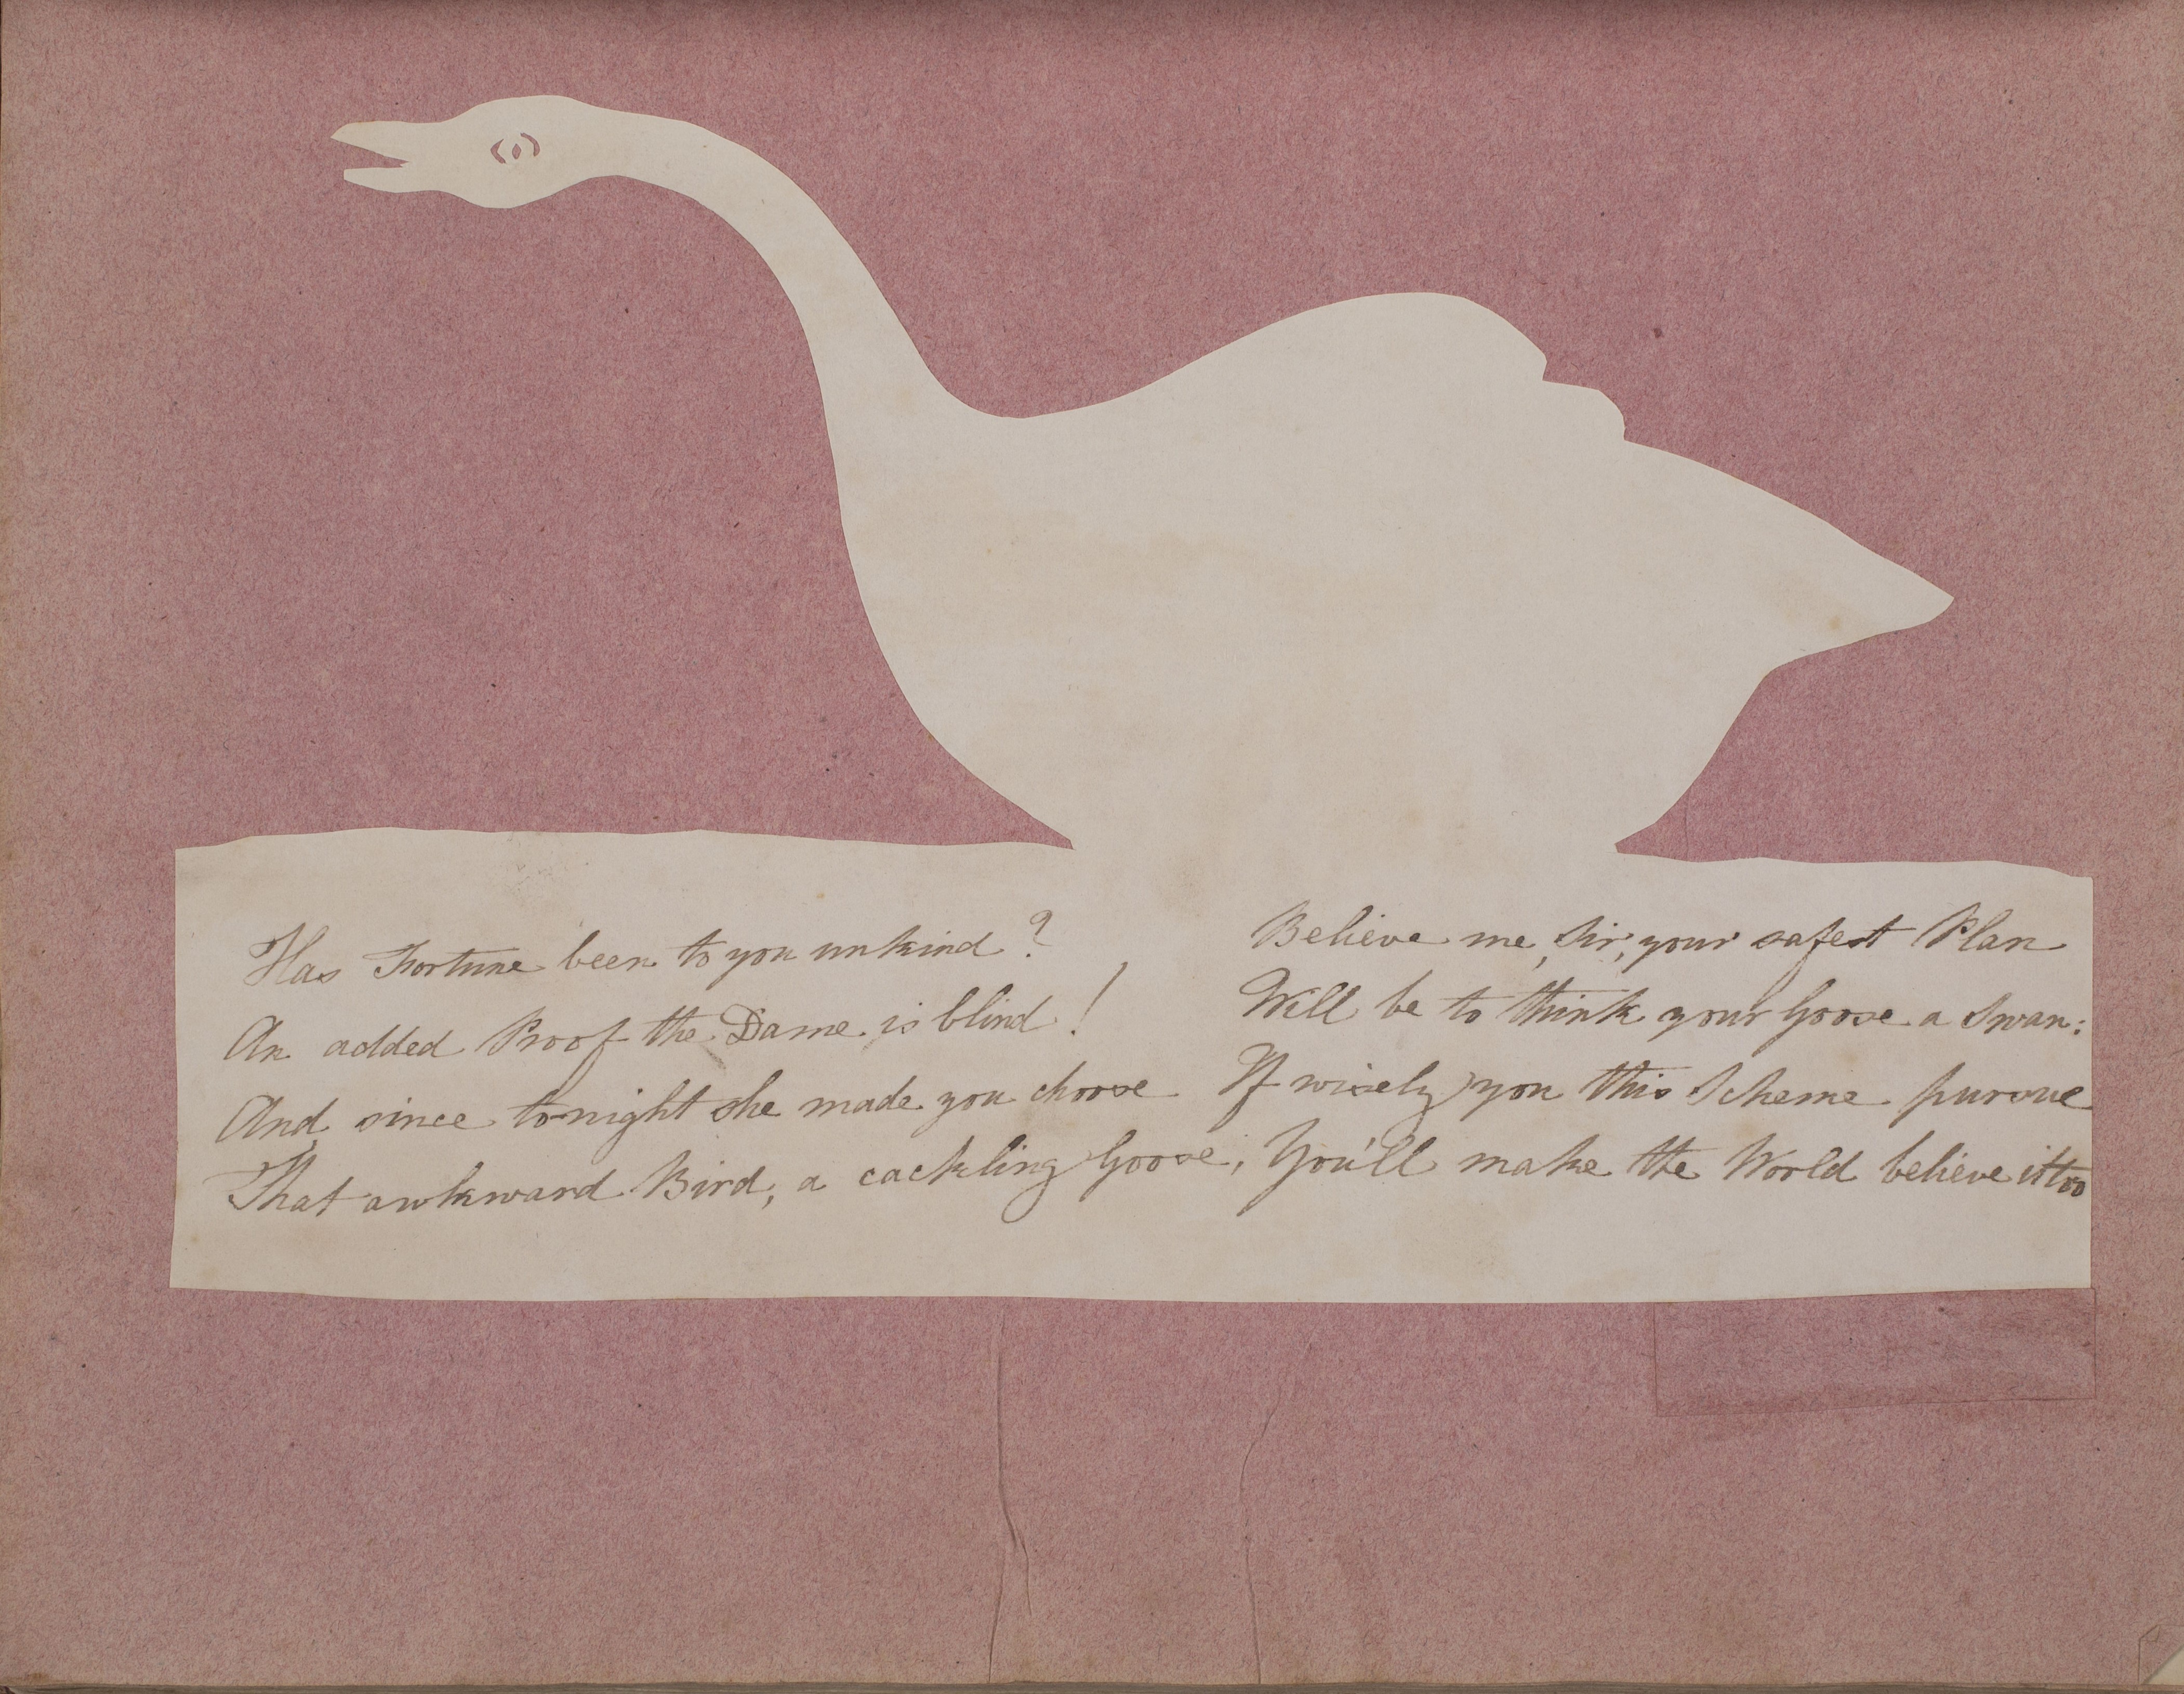 Has Fortune been to you unkind?
An added Proof the Dame is blind!
And since to-night she made you choose
That awkward Bird, a cackling Goose;
Believe me, Sir, your safest Plan
Will be to think your Goose a Swan:
If wisely you this Scheme pursue
You'll make the World believe it too